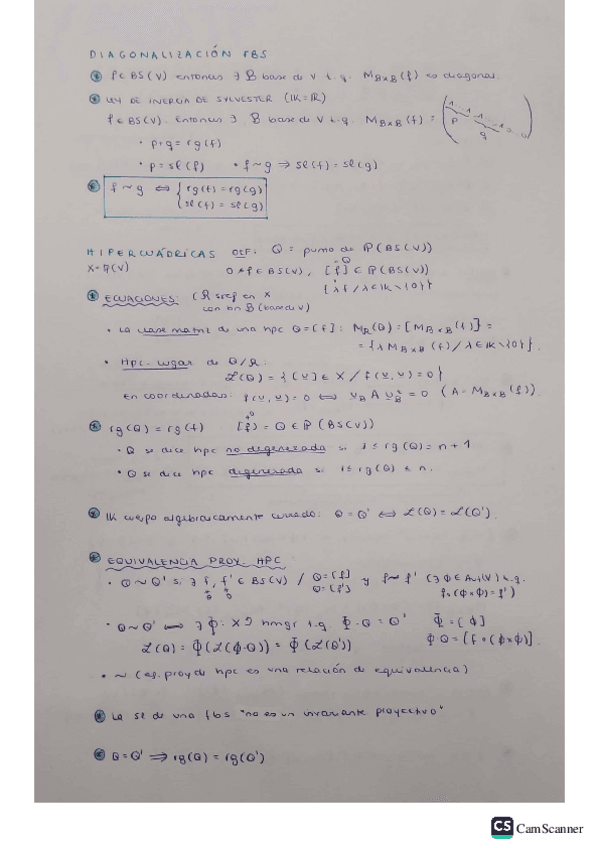 DIAGONALIZACIÓN FBS
f ∈ BS(V) entonces ∃ B base de V t.q. M_{B×B}(f) es diagonal.
LEY DE INERCIA DE SYLVESTER (IK=IR)
f ∈ BS(V). Entonces ∃ B base de V t.q. M_{B×B}(f) =
p q
• p+q = rg(f)
• p = se(f) • f ~ g ⇒ se(f) = se(g)
f ~ g ⇔ { rg(f) = rg(g)
se(f) = se(g)
HIPERCUÁDRICAS DEF: Q = punto de IP(BS(V))
X = IP(V) 0 ≠ f ∈ BS(V), [f] ∈ IP(BS(V))
{λf / λ ∈ IK \ {0}}
ECUACIONES: (R sref en X
con B (base de V)
• La clase matriz de una hpc Q=[f]: M_R(Q) = [M_{B×B}(f)] =
= {λ M_{B×B}(f) / λ ∈ IK \ {0}}.
• Hpc. lugar de Q/R:
L(Q) = {[v] ∈ X / f(v,v) = 0}
En coordenadas: f(v,v) = 0 ⇔ v_B A v_B^t = 0 (A = M_{B×B}(f))
rg(Q) = rg(f) [f] = Q ∈ IP(BS(V))
• Q se dice hpc no degenerada si rg(Q) = n+1
• Q se dice hpc degenerada si 1 ≤ rg(Q) ≤ n.
IK cuerpo algebraicamente cerrado: Q = Q' ⇔ L(Q) = L(Q').
EQUIVALENCIA PROY. HPC
• Q ~ Q' si ∃ f, f' ∈ BS(V) / Q=[f] y f ~ f' (∃ φ ∈ Aut(V) t.q.
Q'=[f'] f∘(φ×φ) = f')
• Q ~ Q' ⇔ ∃ Φ: X hmgf t.q. Φ·Q = Q' Φ = [φ]
L(Q) = Φ(L(Φ·Q)) = Φ(L(Q')) Φ·Q = [f∘(φ×φ)].
• ~ (eq. proy de hpc es una relación de equivalencia)
La se de una fbs "no es un invariante proyectivo"
Q = Q' ⇒ rg(Q) = rg(Q')
CS CamScanner